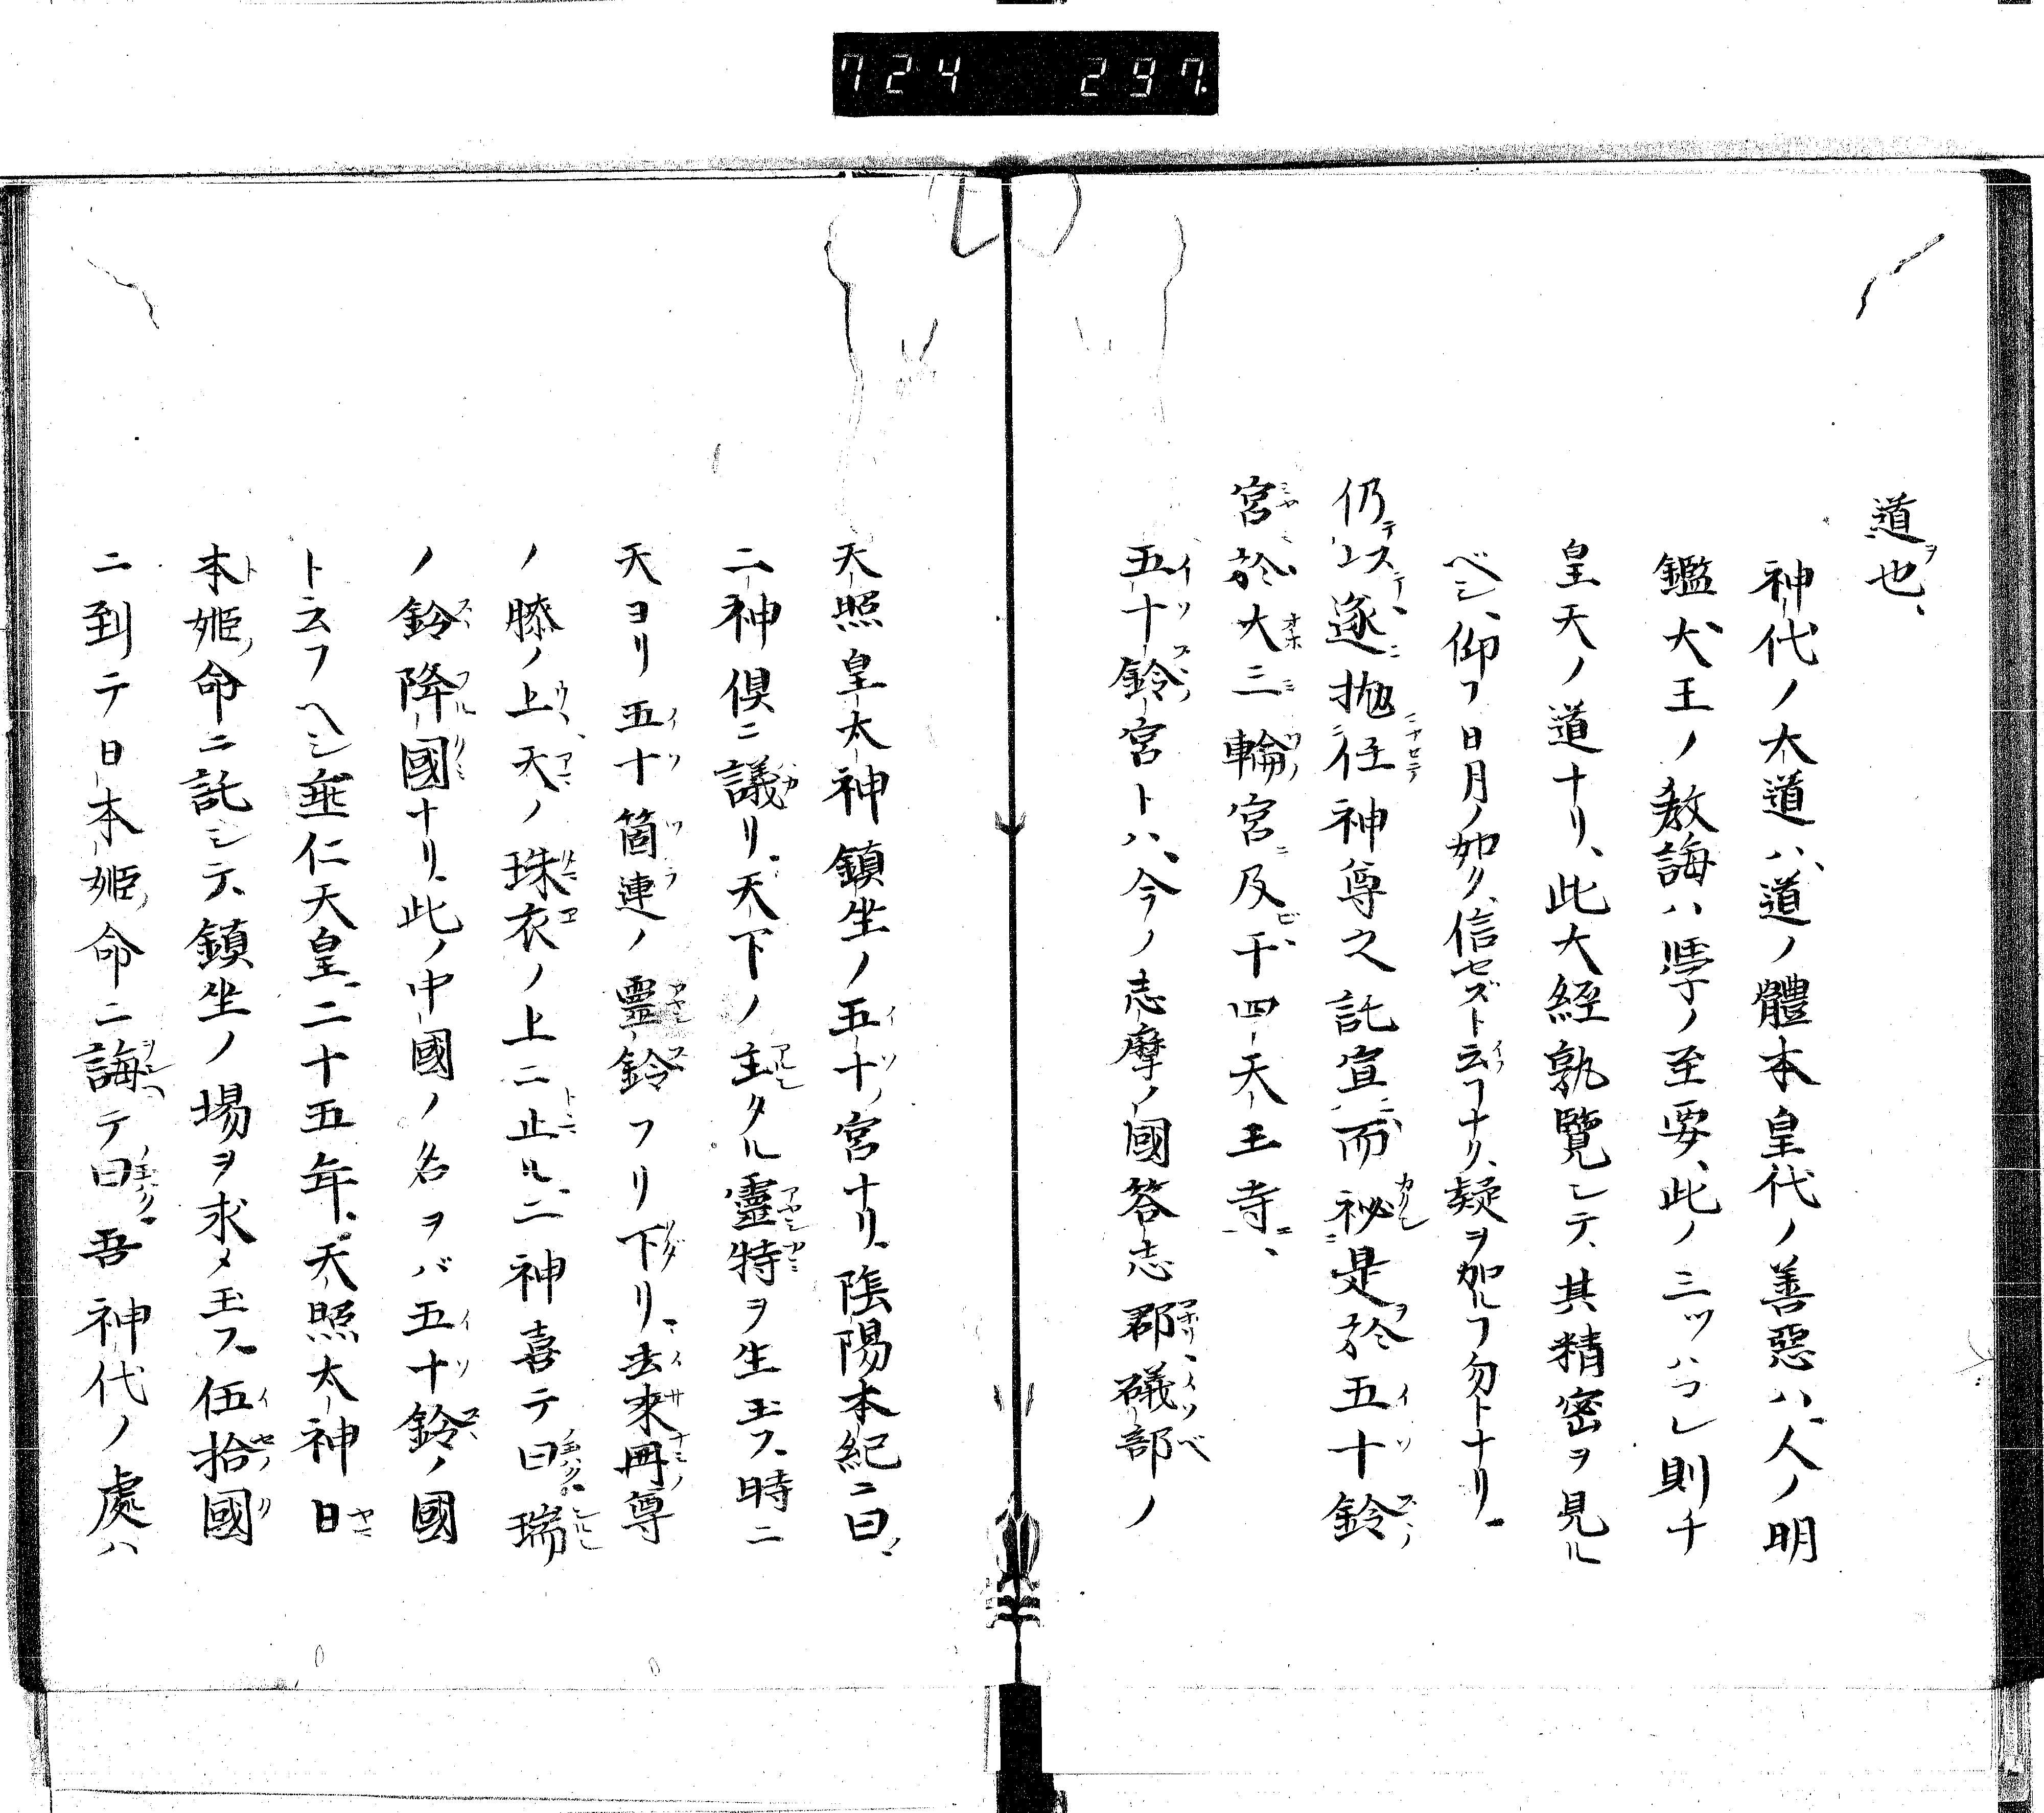 724 297.
道也、
神代ノ大道ハ、道ノ體本皇代ノ善惡ハ、人ノ明
鑑大王ノ教誨ハ學ノ至要、此ノ三ツハ則チ
皇天ノ道ナリ、此大経孰覽シテ、其精密ヲ見ル
ベシ、仰フ日月ノ如ク、信セズト云フヿナリ、疑ヲ加ルヿ勿トナリ
仍以逐抛任神尊之託宣而祕是於五十鈴
宮於大三輪宮及于四天王寺、
五十鈴宮トハ、今ノ志摩ノ國答志郡礒部ノ
天照皇太神鎮坐ノ五十宮ナリ、陰陽本紀ニ曰
二神倶ニ議リ天下ノ主タル靈特ヲ生玉フ、時ニ
天ヨリ五十箇連ノ靈鈴フリ下リ去來冊尊
ノ膝ノ上天ノ珠衣ノ上ニ止ル、二神喜テ曰瑞
ノ鈴降國ナリ、此ノ中國ノ名ヲバ五十鈴ノ國
ト云フヘシ垂仁天皇二十五年、天照太神日
本姬命ニ託シテ、鎮坐ノ場ヲ求メ玉フ、伍拾國
ニ到テ日本姬命ニ誨テ曰吾神代ノ處ハ